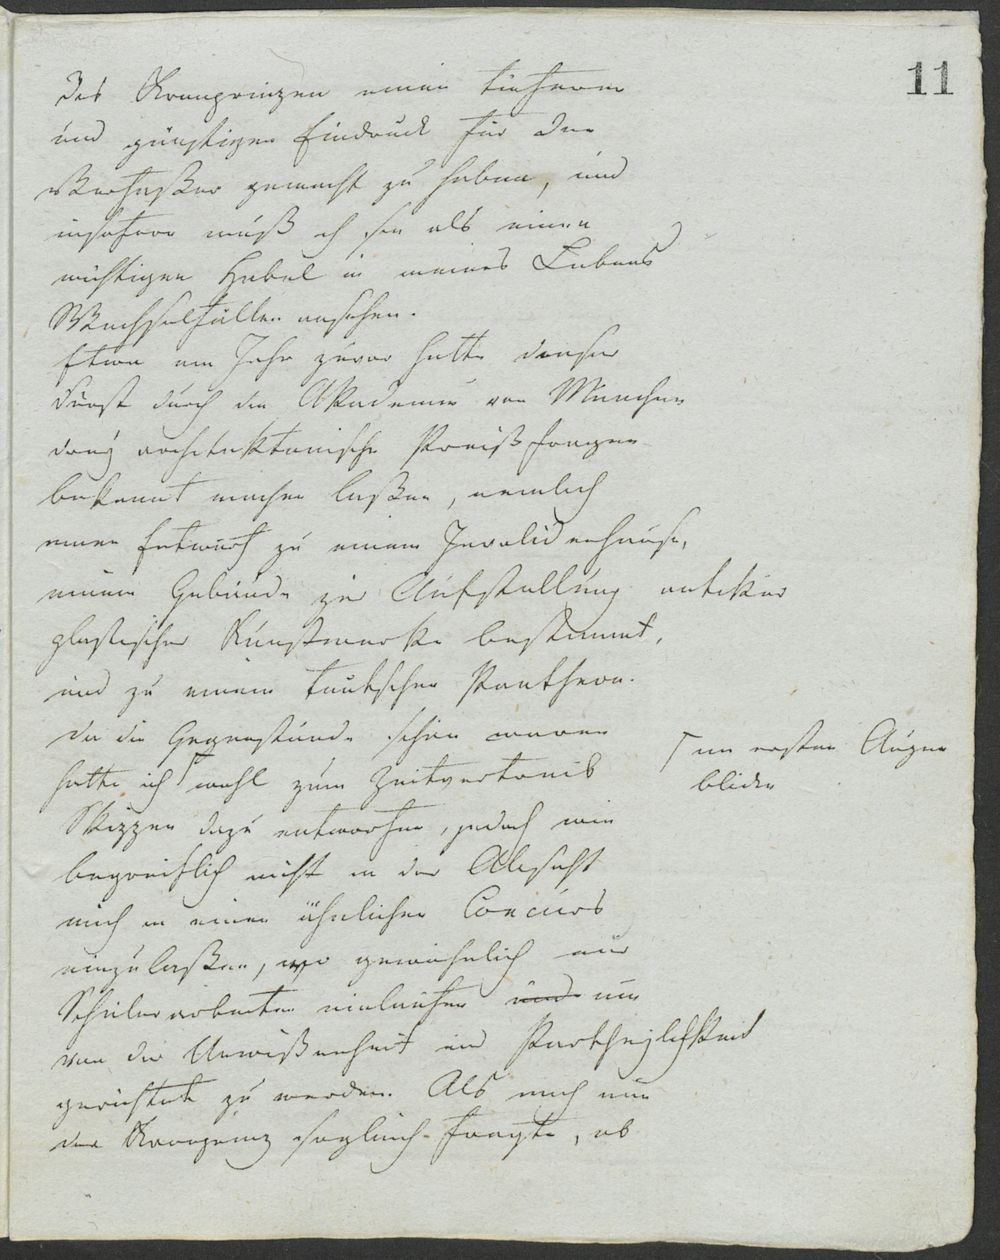 11
des Kronprinzen einen tieferen
und günstigen Eindruck für den
Verfasser gemacht zu haben, und
insofern muß ich sie als einen
wichtigen Hebel in meines Lebens
Wechselfällen ansehen.
Etwa ein Jahr zuvor hatte dieser
Fürst durch die Akademie von München
drey architektonische Preißfragen
bekannt machen laßen, nemlich
einen Entwurf zu einem Invalidenhause,
einem Gebäude zur Aufstellung antiker
plastischer Kunstwerke bestimmt,
und zu einem teutschen Pantheon.
Da die Gegenstände schön waren
hatte ich ⌈ wohl zum Zeitvertreib
⌈ im ersten Augen
blicke
Skizzen dazu entworfen, jedoch wie
begreiflich nicht in der Absicht
mich in einen ähnlichen Concurs
einzulaßen, wo gewöhnlich nur
Schülerarbeiten einlaufen und um
von der Unwißenheit und Partheylichkeit
gerichtet zu werden. Als mich nun
der Kronprinz sogleich fragte, ob